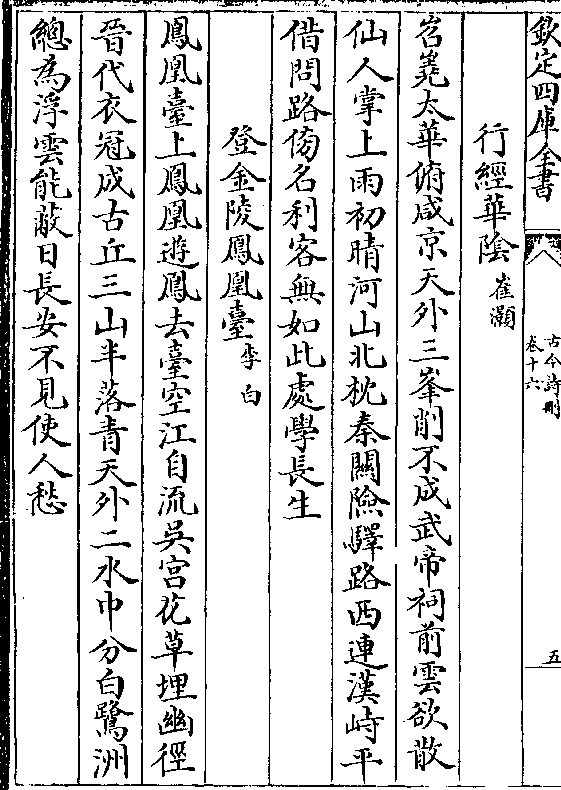 欽定四庫全書
古今詩刪
卷十六
五
行經華陰 崔灝
岧嶤太華俯咸京天外三峯削不成武帝祠前雲欲散
仙人掌上雨初晴河山北枕秦關險驛路西連漢畤平
借問路傍名利客無如此處學長生
登金陵鳳凰臺 李白
鳳凰臺上鳳凰遊鳳去臺空江自流吳宮花草埋幽徑
晉代衣冠成古丘三山半落青天外二水中分白鷺洲
總為浮雲能蔽日長安不見使人愁